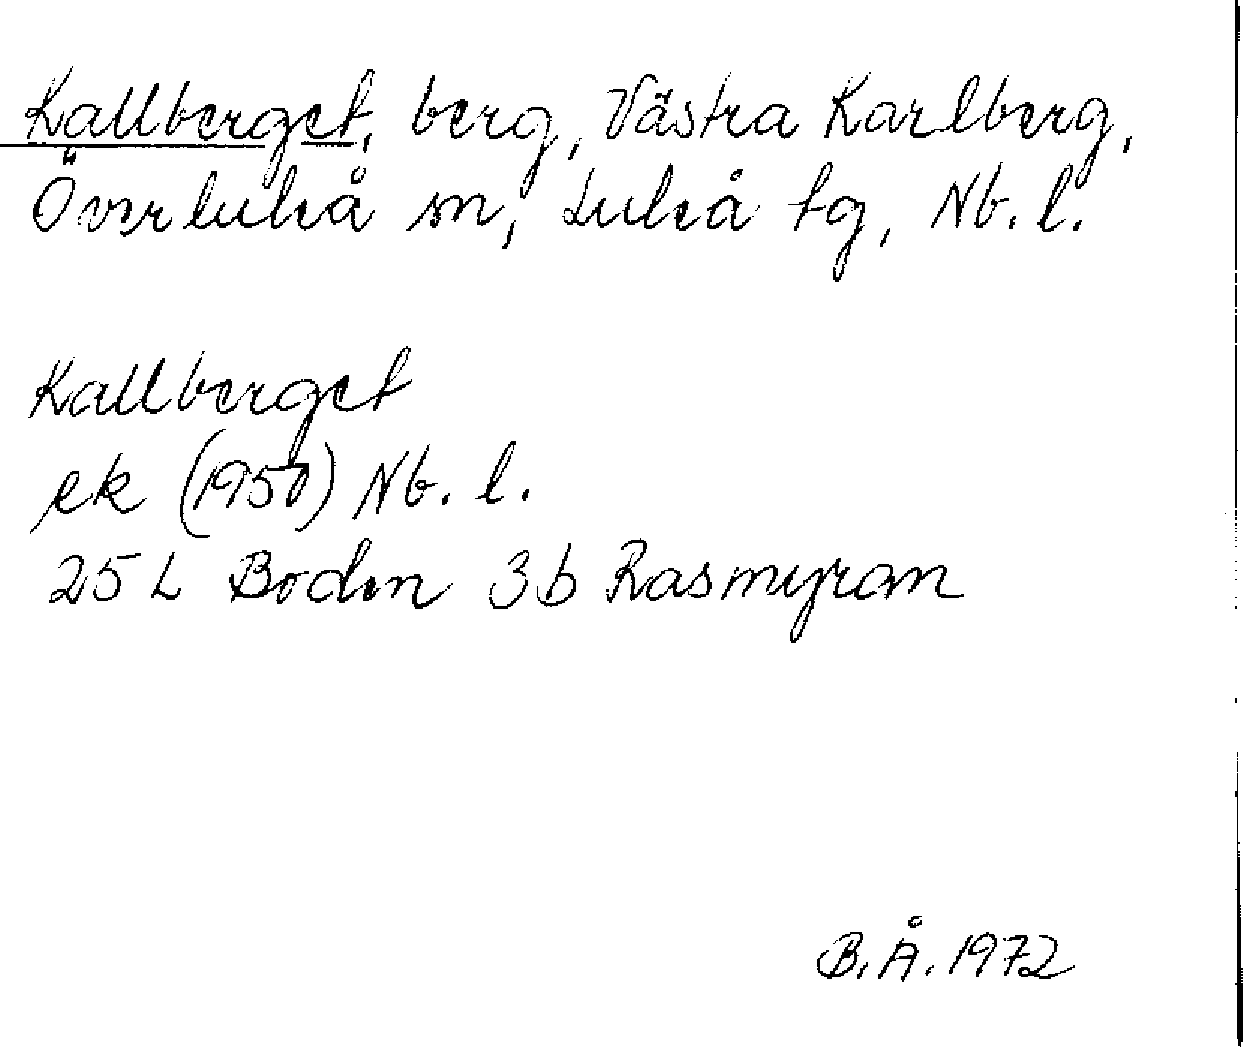 Kallberget, berg, Västra Karlberg,
Överluleå sn, Luleå tg, Nb. l.
Kallberget
ek (1950) Nb. l.
25 L Boden 3b Rasmyran
B. Å. 1972